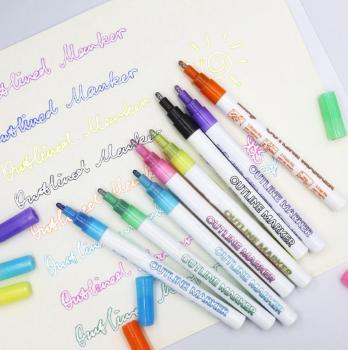 Outlined Marker
Outlined Marker
Outlined Marker
Outlined Marker
Outlined Marker
Outlined Marker
Outlined Marker
OUTLINE MARKER
OUTLINE MARKER
OUTLINE MARKER
OUTLINE MARKER
OUTLINE MARKER
OUTLINE MARKER
OUTLINE MARKER